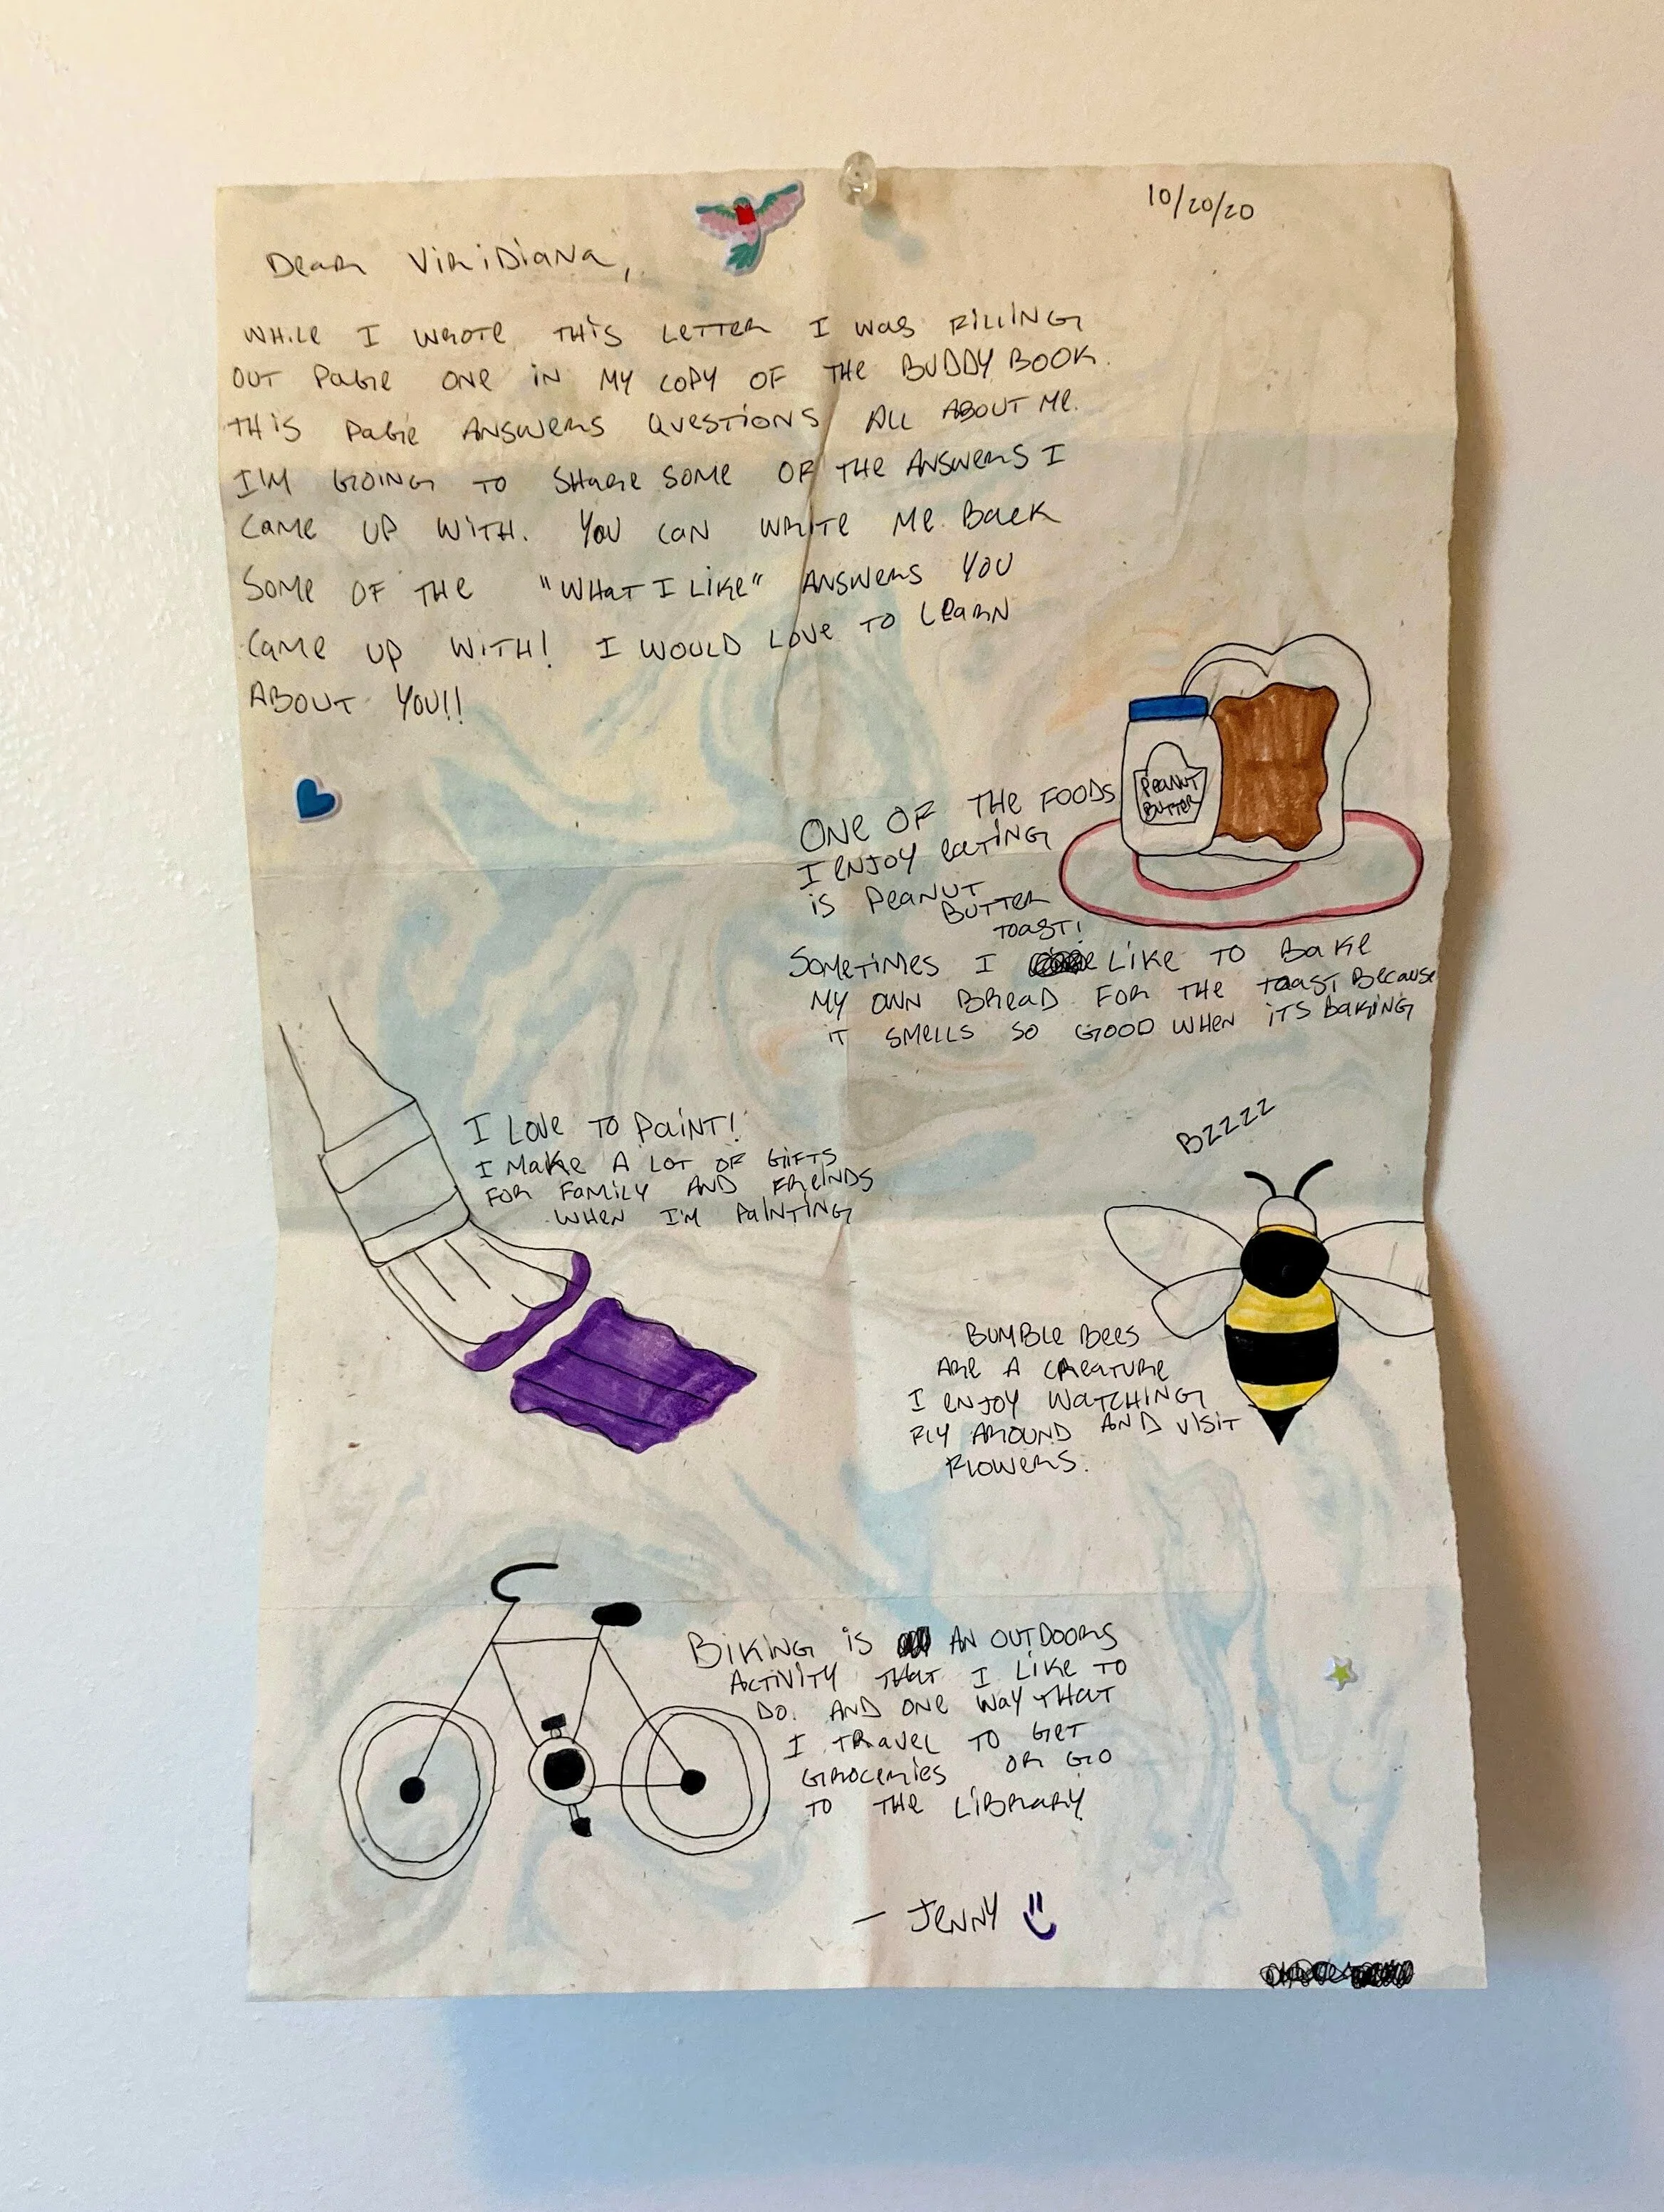 10/20/20
Dear Viridiana,
WHILE I WROTE THIS LETTER I WAS FILLING
OUT PAGE ONE IN MY COPY OF THE BUDDY BOOK.
THIS PAGE ANSWERS QUESTIONS ALL ABOUT ME.
I'M GOING TO SHARE SOME OF THE ANSWERS I
CAME UP WITH. YOU CAN WRITE ME BACK
SOME OF THE "WHAT I LIKE" ANSWERS YOU
CAME UP WITH! I WOULD LOVE TO LEARN
ABOUT YOU!!
PEANUT
BUTTER
ONE OF THE FOODS
I ENJOY EATING
IS PEANUT
BUTTER
TOAST!
SOMETIMES I LIKE TO BAKE
MY OWN BREAD FOR THE TOAST BECAUSE
IT SMELLS SO GOOD WHEN ITS BAKING
I LOVE TO PAINT!
I MAKE A LOT OF GIFTS
FOR FAMILY AND FRIENDS
WHEN I'M PAINTING
BZZZZ
BUMBLE BEES
ARE A CREATURE
I ENJOY WATCHING
FLY AROUND AND VISIT
FLOWERS.
BIKING IS AN OUTDOORS
ACTIVITY THAT I LIKE TO
DO. AND ONE WAY THAT
I TRAVEL TO GET
GROCERIES OR GO
TO THE LIBRARY
— JENNY